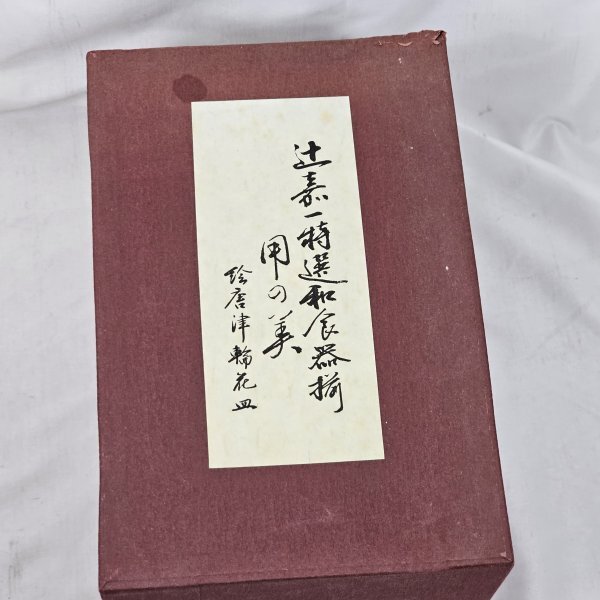 辻嘉一特選和食器揃
用の美
絵唐津輪花皿